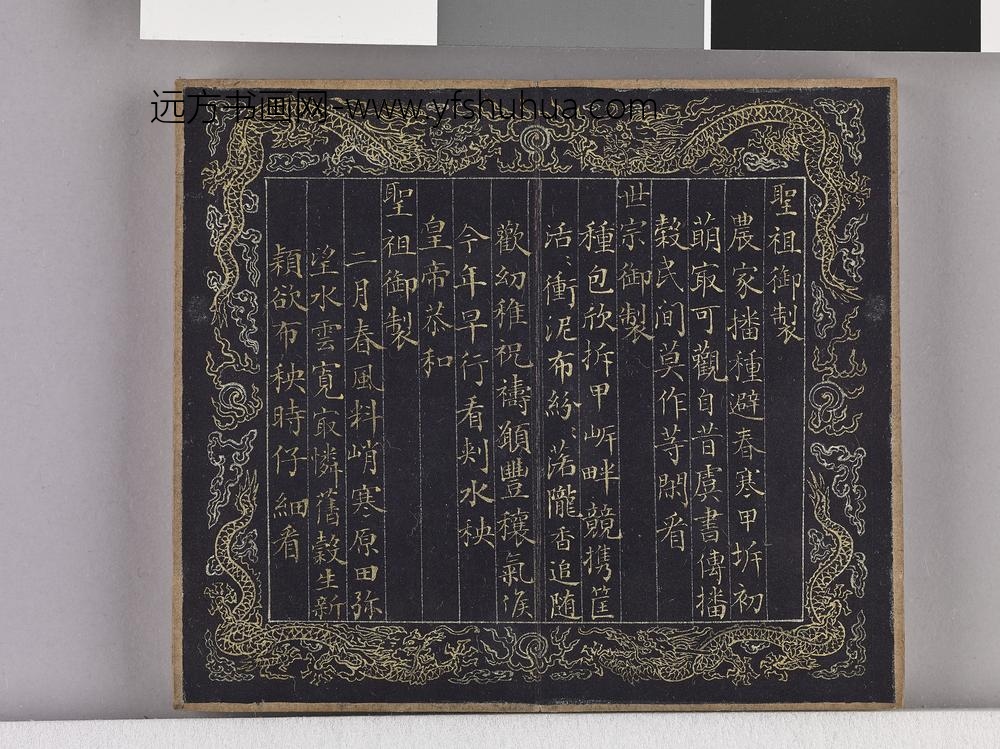 远方书画网-www.yfshuhua.com
聖祖御製
農家播種避春寒甲坼初
萌㝡可觀自昔虞書傳播
穀民間莫作等閒看
世宗御製
種包欣拆甲岍畔競携筐
活〻衝泥布紛〻落隴香追随
歡幼稚祝禱顓豐穰氣候
今年早行看刾水秧
皇帝恭和
聖祖御製
二月春風料峭寒原田弥
望水雲寬㝡憐舊榖生新
穎欲布秧時仔細看